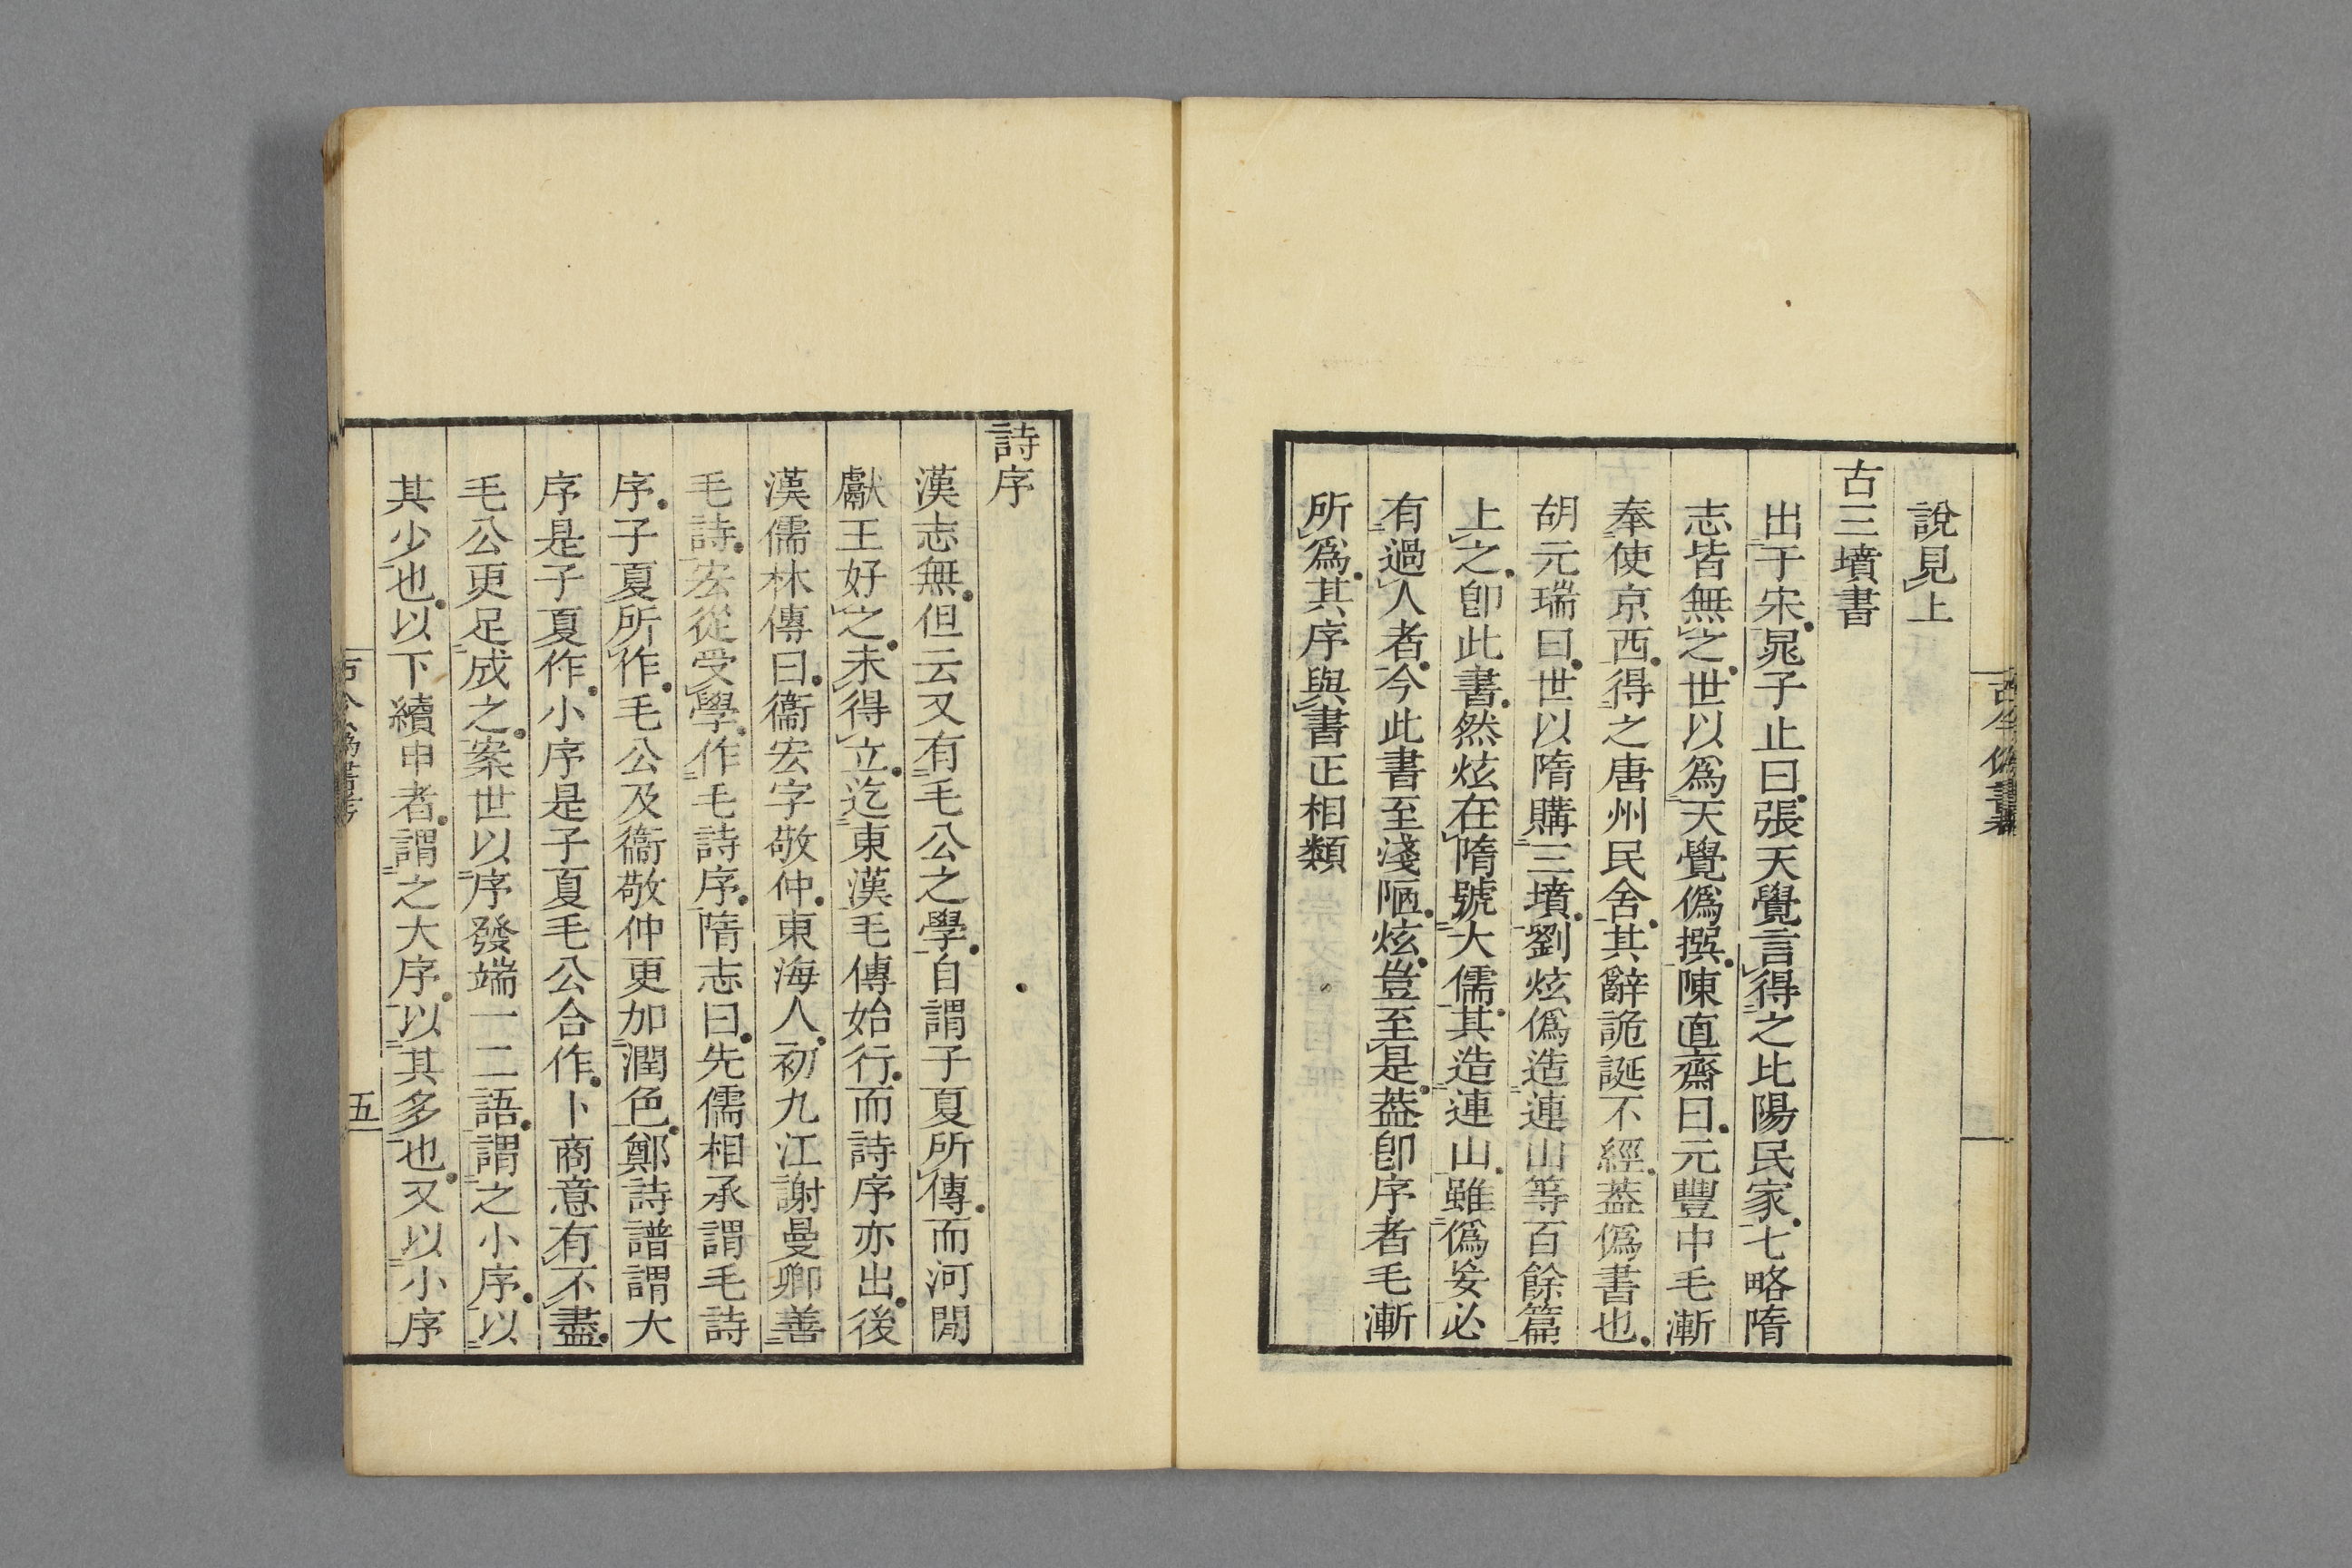 古今僞書考
說見上
古三墳書
出于宋晁子止曰張天覺言得之比陽民家七略隋
志皆無之世以爲天覺僞撰陳直齋曰元豐中毛漸
奉使京西得之唐州民舍其辭詭誕不經葢僞書也
胡元瑞曰世以隋購三墳劉炫僞造連山等百餘篇
上之卽此書然炫在隋號大儒其造連山雖僞妄必
有過人者今此書至淺陋炫豈至是葢卽序者毛漸
所爲其序與書正相類
詩序
漢志無但云又有毛公之學自謂子夏所傳而河閒
獻王好之未得立迄東漢毛傳始行而詩序亦出後
漢儒林傳曰衞宏字敬仲東海人初九江謝曼卿善
毛詩宏從受學作毛詩序隋志曰先儒相承謂毛詩
序子夏所作毛公及衞敬仲更加潤色鄭詩譜謂大
序是子夏作小序是子夏毛公合作卜商意有不盡
毛公更足成之案世以序發端一二語謂之小序以
其少也以下續申者謂之大序以其多也又以小序
古今僞書考
五